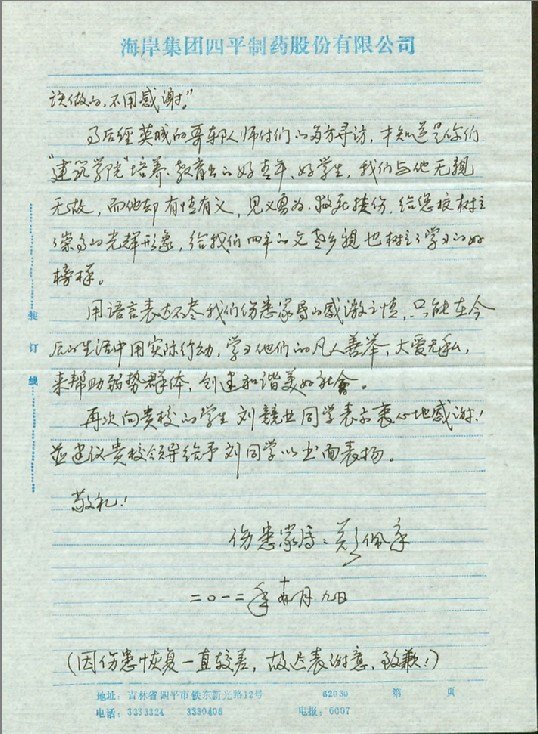 海岸集团四平制药股份有限公司
该做的,不用感谢。"
事后经英城的哥郭人师付们的多方寻访,才知道是你们
"建筑学院"培养、教育出的好青年、好学生,我们与他无亲
无故,而他却有情有义,见义勇为,救死扶伤,给您校树立
了崇高的光辉形象,给我们四平的父老乡亲也树立了学习的好
榜样。
用语言表达不尽我们伤患家属的感激之情,只能在今
后的生活中用实际行动,学习他们的凡人善举,大爱无私,
来帮助弱势群体,创建和谐美好社会。
再次向贵校的学生刘竞业同学表示衷心地感谢!
并建议贵校领导给予刘同学以书面表扬。
敬礼!
伤患家属:彭佩
二〇一二年 月九日
(因伤患恢复一直较差,故迟表谢意,致歉!)
装订线
地址:吉林省四平市铁东新光路12号 第 页
电话:3233324 3230406 电报:6007